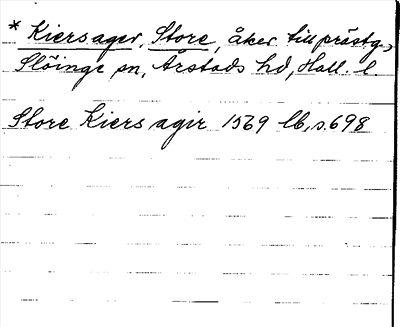 * Kiersager, Store, åker till prästg.,
Slöinge sn, Årstads hd, Hall. l
Store Kiers agir 1569 lb, s. 698